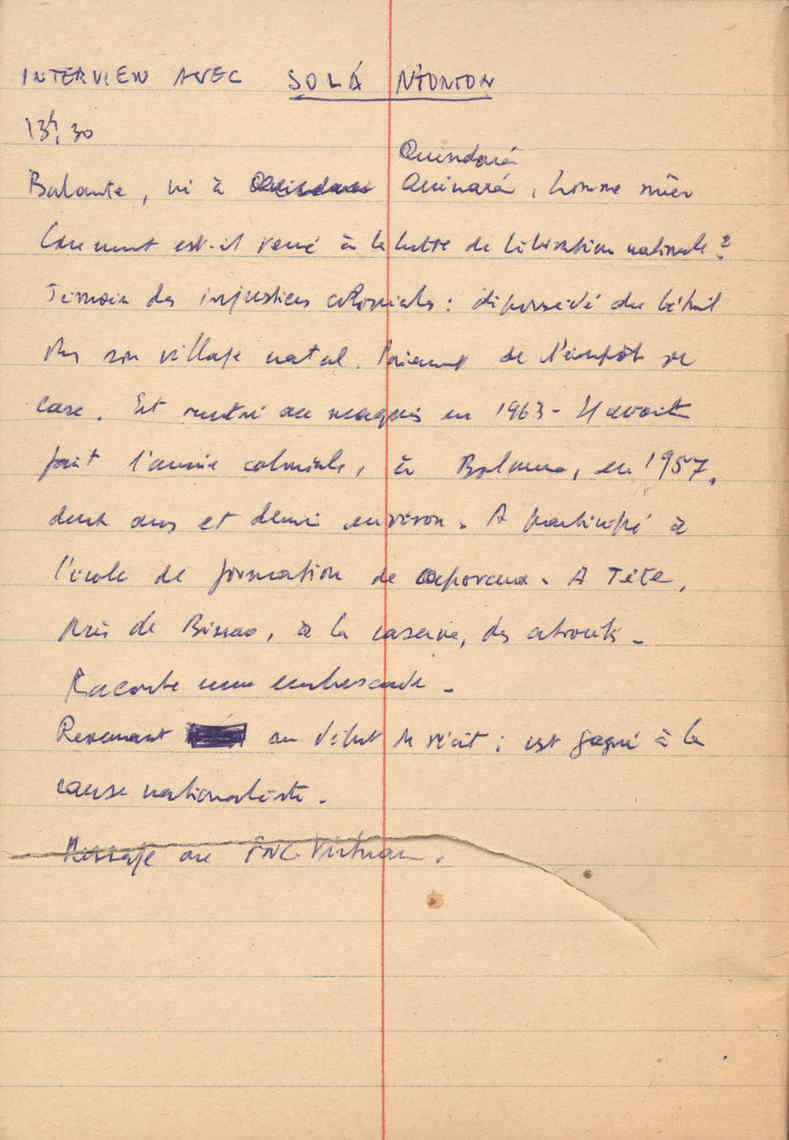 INTERVIEW AVEC SOLÁ N'TONTON
13h,30
Quindará
Balante, né à Quinará, homme mûr
Comment est-il venu à la lutte de libération nationale ?
Témoin des injustices coloniales : dépossédé du bétail
dans son village natal. Paiement de l'impôt de
case. Est rentré au maquis en 1963 - Il avait
fait l'armée coloniale, à Bolama, en 1957,
deux ans et demi environ. A participé à
l'école de formation de caporaux. A Tête,
près de Bissao, à la caserne, des
Raconte une embuscade -
Revenant au début du récit : est gagné à la
cause nationaliste.
Message au FNL Vietnam.